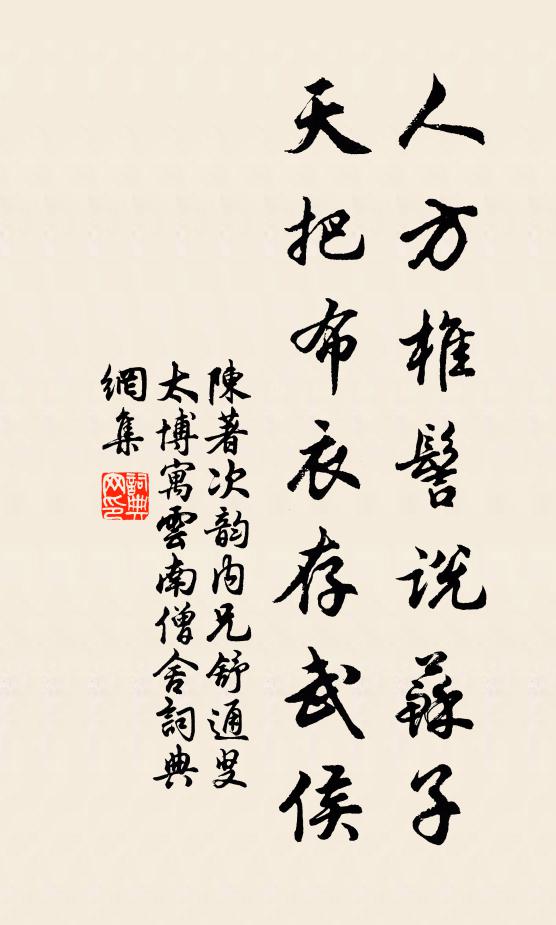 人方椎髻説蘇子
天把布衣存武侯
陳著次韵内兄舒通叟
太博寓雲南僧舍詞典
網集
詞典
网印